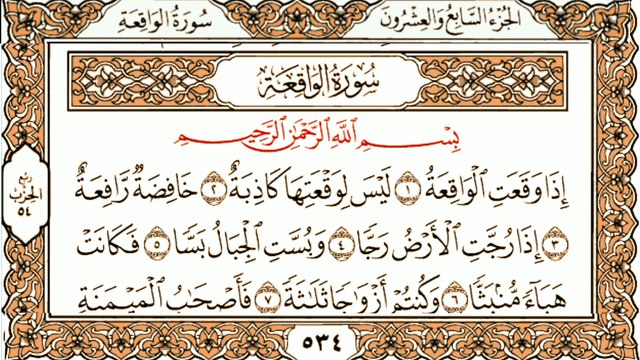 الجزء السابع والعشرون سورة الواقعة
سُورَةُ الوَاقِعَةِ
بِسْمِ اللَّهِ الرَّحْمَٰنِ الرَّحِيمِ
إِذَا وَقَعَتِ الْوَاقِعَةُ ١ لَيْسَ لِوَقْعَتِهَا كَاذِبَةٌ ٢ خَافِضَةٌ رَّافِعَةٌ
٣ إِذَا رُجَّتِ الْأَرْضُ رَجًّا ٤ وَبُسَّتِ الْجِبَالُ بَسًّا ٥ فَكَانَتْ
هَبَاءً مُّنۢبَثًّا ٦ وَكُنتُمْ أَزْوَاجًا ثَلَاثَةً ٧ فَأَصْحَابُ الْمَيْمَنَةِ
ربع
الحزب
٥٤
٥٣٤